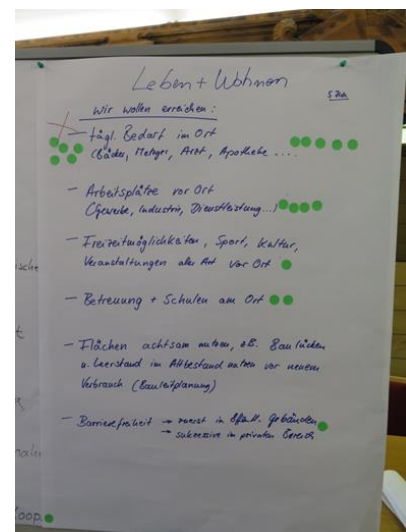 Leben + Wohnen
Wir wollen erreichen:
- tägl. Bedarf im Ort
(Bäcker, Metzger, Arzt, Apotheke ....
- Arbeitsplätze vor Ort
(Gewerbe, Industrie, Dienstleistung...)
- Freizeitmöglichkeiten, Sport, Kultur,
Veranstaltungen aller Art vor Ort
- Betreuung + Schulen am Ort
- Flächen achtsam nutzen, z.B. Baulücken
u. Leerstand im Altbestand nutzen vor neuem
Verbrauch (Bauleitplanung)
- Barrierefreiheit → zuerst in öffentl. Gebäuden
→ sukzessive im privaten Bereich